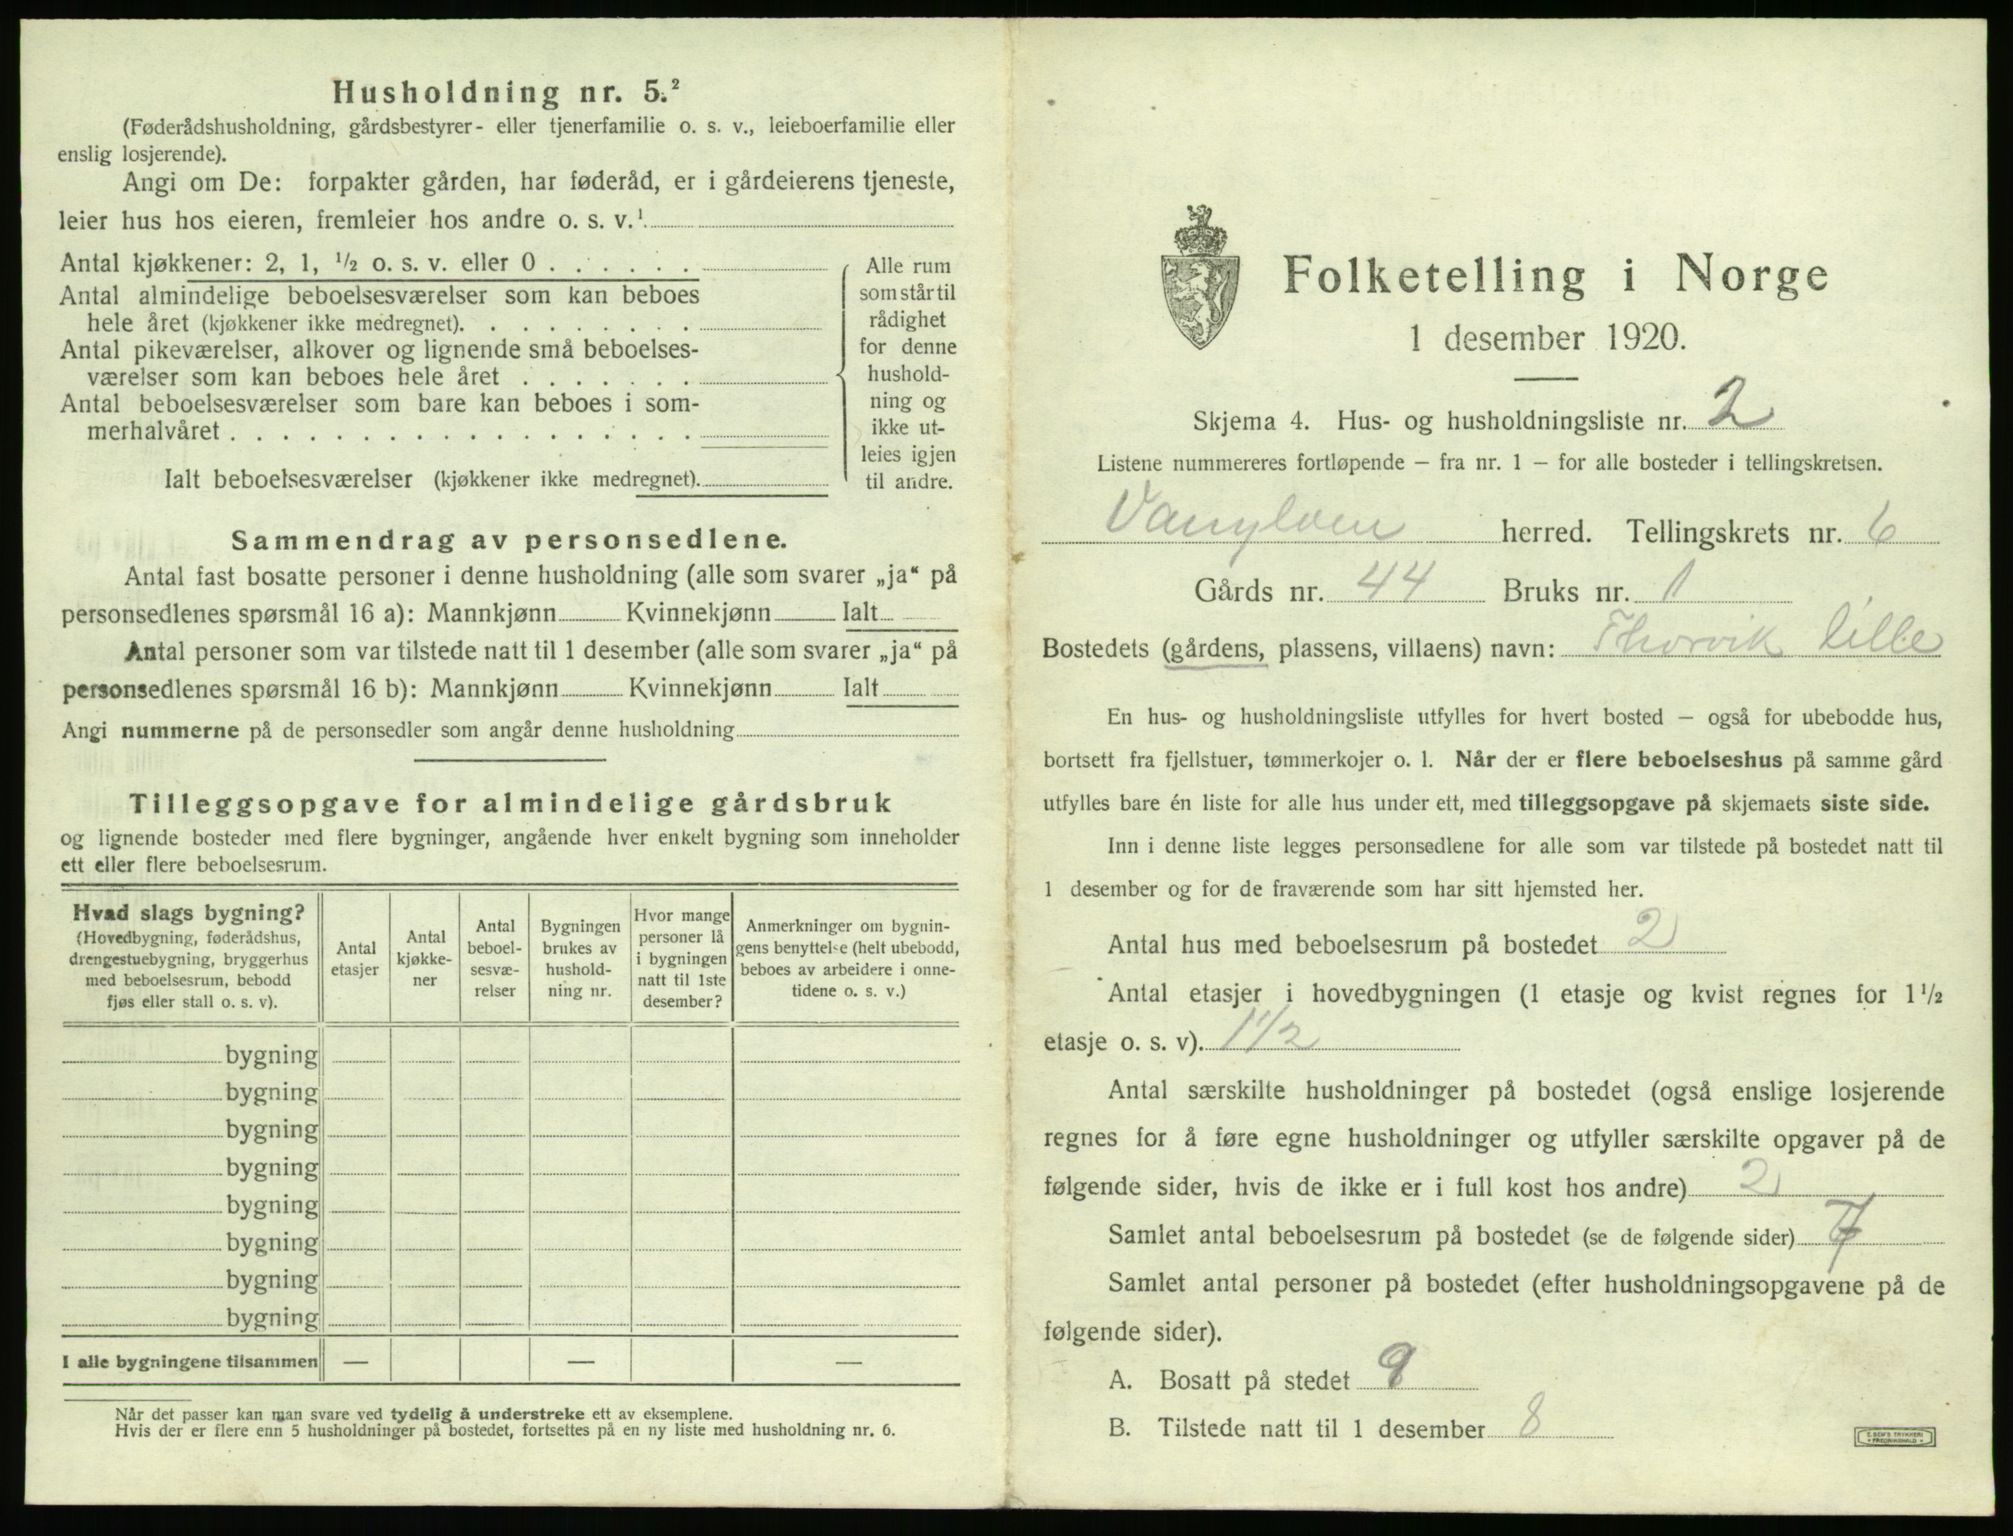 Husholdning nr. 5.²
(Føderådshusholdning, gårdsbestyrer- eller tjenerfamilie o. s. v., leieboerfamilie eller
enslig losjerende).
Angi om De: forpakter gården, har føderåd, er i gårdeierens tjeneste,
leier hus hos eieren, fremleier hos andre o. s. v.¹
Antal kjøkkener: 2, 1, ½ o. s. v. eller 0 . . . . . .
Antal almindelige beboelsesværelser som kan beboes
hele året (kjøkkener ikke medregnet). . . . . . . . .
Antal pikeværelser, alkover og lignende små beboelses-
værelser som kan beboes hele året . . . . . . .
Antal beboelsesværelser som bare kan beboes i som-
merhalvåret . . . . . . . . . . . . . . . . . .
Ialt beboelsesværelser (kjøkkener ikke medregnet).
Alle rum
som står til
rådighet
for denne
hushold-
ning og
ikke ut-
leies igjen
til andre.
Sammendrag av personsedlene.
Antal fast bosatte personer i denne husholdning (alle som svarer „ja“ på
personsedlenes spørsmål 16 a): Mannkjønn Kvinnekjønn Ialt
Antal personer som var tilstede natt til 1 desember (alle som svarer „ja“ på
personsedlenes spørsmål 16 b): Mannkjønn Kvinnekjønn Ialt
Angi nummerne på de personsedler som angår denne husholdning
Tilleggsopgave for almindelige gårdsbruk
og lignende bosteder med flere bygninger, angående hver enkelt bygning som inneholder
ett eller flere beboelsesrum.
Hvad slags bygning?
(Hovedbygning, føderådshus,
drengestuebygning, bryggerhus
med beboelsesrum, bebodd
fjøs eller stall o. s. v).
Antal
etasjer
Antal
kjøkke-
ner
Antal
beboel-
sesvæ-
relser
Bygningen
brukes av
hushold-
ning nr.
Hvor mange
personer lå
i bygningen
natt til 1ste
desember?
Anmerkninger om bygnin-
gens benyttelse (helt ubebodd,
beboes av arbeidere i onne-
tidene o. s. v.)
bygning
bygning
bygning
bygning
bygning
bygning
bygning
bygning
I alle bygningene tilsammen — — —
Når det passer kan man svare ved tydelig å understreke ett av eksemplene.
Hvis der er flere enn 5 husholdninger på bostedet, fortsettes på en ny liste med husholdning nr. 6.
Folketelling i Norge
1 desember 1920.
Skjema 4. Hus- og husholdningsliste nr. 2
Listene nummereres fortløpende – fra nr. 1 – for alle bosteder i tellingskretsen.
Vanylven herred. Tellingskrets nr. 6
Gårds nr. 44 Bruks nr. 1
Bostedets (gårdens, plassens, villaens) navn: Thorvik lille
En hus- og husholdningsliste utfylles for hvert bosted – også for ubebodde hus,
bortsett fra fjellstuer, tømmerkojer o. l. Når der er flere beboelseshus på samme gård
utfylles bare én liste for alle hus under ett, med tilleggsopgave på skjemaets siste side.
Inn i denne liste legges personsedlene for alle som var tilstede på bostedet natt til
1 desember og for de fraværende som har sitt hjemsted her.
Antal hus med beboelsesrum på bostedet 2
Antal etasjer i hovedbygningen (1 etasje og kvist regnes for 1½
etasje o. s. v). 1½
Antal særskilte husholdninger på bostedet (også enslige losjerende
regnes for å føre egne husholdninger og utfyller særskilte opgaver på de
følgende sider, hvis de ikke er i full kost hos andre) 2
Samlet antal beboelsesrum på bostedet (se de følgende sider) 7
Samlet antal personer på bostedet (efter husholdningsopgavene på de
følgende sider).
A. Bosatt på stedet 9
B. Tilstede natt til 1 desember 8
E. SEM'S TRYKKERI
FREDRIKSHALD